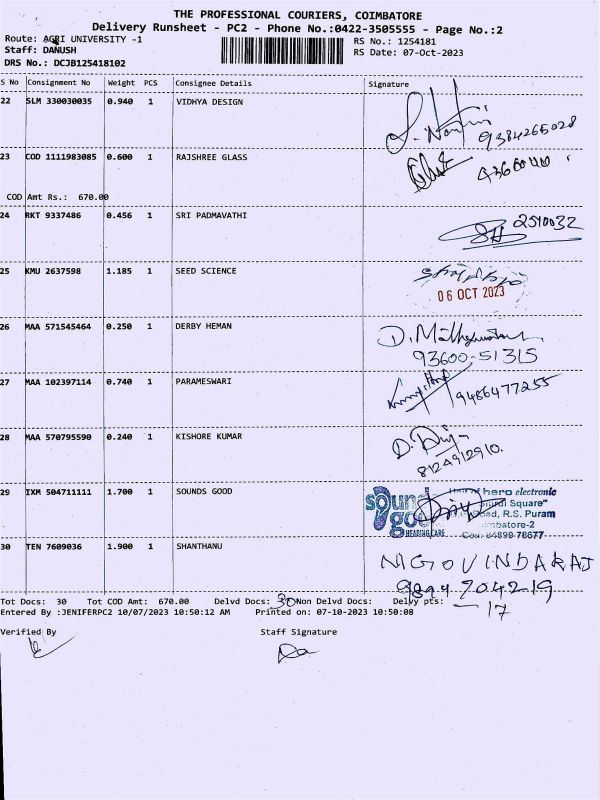 THE PROFESSIONAL COURIERS, COIMBATORE
Delivery Runsheet - PC2 - Phone No.:0422-3505555 - Page No.:2
Route: AGRI UNIVERSITY -1 RS No.: 1254181
Staff: DANUSH RS Date: 07-Oct-2023
DRS No.: DCJB125418102
S No Consignment No Weight PCS Consignee Details Signature
22 SLM 330030035 0.940 1 VIDHYA DESIGN
9384265028
23 COD 1111983085 0.600 1 RAJSHREE GLASS
COD Amt Rs.: 670.00
24 RKT 9337486 0.456 1 SRI PADMAVATHI 2510032
25 KMU 2637598 1.185 1 SEED SCIENCE
06 OCT 2023
26 MAA 571545464 0.250 1 DERBY HEMAN
93600-51315
27 MAA 102397114 0.740 1 PARAMESWARI 9486477255
28 MAA 570795590 0.240 1 KISHORE KUMAR
8124912910.
29 IXM 504711111 1.700 1 SOUNDS GOOD sound hero electronic
Square"
good R.S. Puram
HEARING CARE 84899 78677
30 TEN 7609036 1.900 1 SHANTHANU N GOVINDARAJ
9894704219
Tot Docs: 30 Tot COD Amt: 670.00 Delvd Docs: 30 Non Delvd Docs: Delvy pts: 17
Entered By :JENIFERPC2 10/07/2023 10:50:12 AM Printed on: 07-10-2023 10:50:08
Verified By Staff Signature
Da